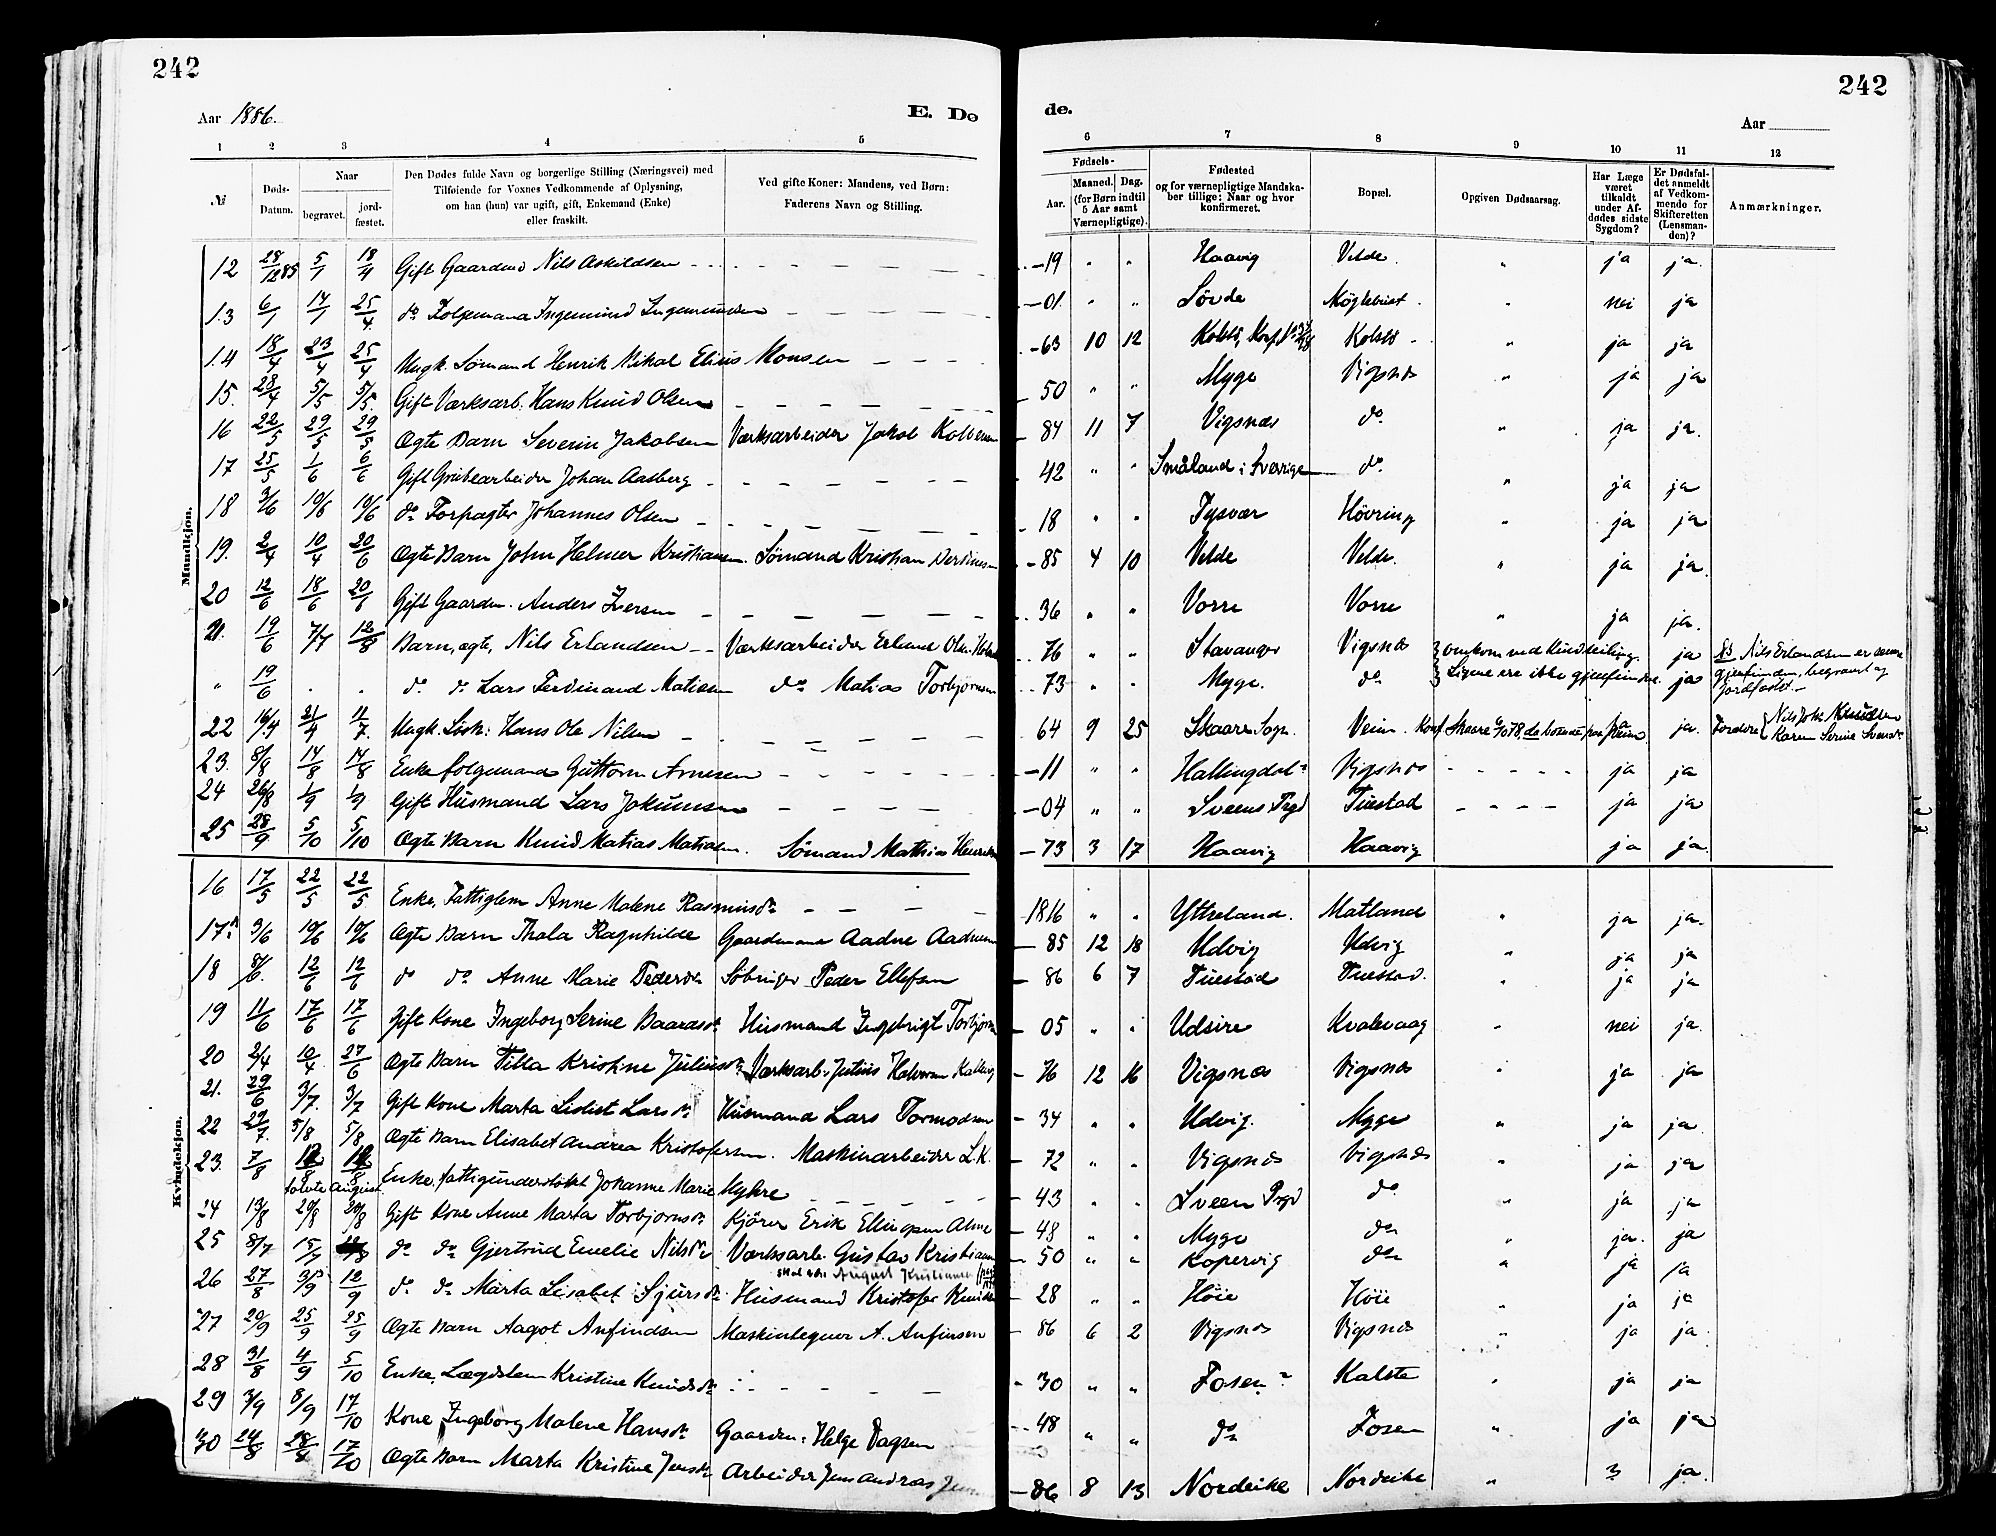 242
242
Aar 1886.
E. Dø
de.
Aar
1 2 3 4 5
6 7 8 9 10 11 12
№
Døds-Datum.
Naar
begravet.
jord-fæstet.
Den Dødes fulde Navn og borgerlige Stilling (Næringsvei) med
Tilføiende for Voxnes Vedkommende af Oplysning,
om han (hun) var ugift, gift, Enkemand (Enke)
eller fraskilt.
Ved gifte Koner: Mandens, ved Børn:
Faderens Navn og Stilling.
Fødsels-
Aar.
Maaned. Dag.
(for Børn indtil
5 Aar samt
Værnepligtige).
Fødested
og for værnepligtige Mandska-
ber tillige: Naar og hvor
konfirmeret.
Bopæl.
Opgiven Dødsaarsag.
Har Læge
været
tilkaldt
under Af-
dødes sidste
Sygdom?
Er Dødsfal-
det anmeldt
af Vedkom-
mende for
Skifteretten
(Lensman-
den)?
Anmærkninger.
Mandkjøn.
12 28/12 85 5/1 18/4 Gift Gaardmd Nils Askildsen - 19 " " Haavig Velde " ja ja.
13 6/1 14/1 25/4 do Folgemand Ingemund Ingemundsen - 01. " " Sövde " nei ja
14 18/4 23/4 25/4 Ungk. Sømand Henrik Nikal Elius Monsen - 63 10 12 Kolstö - " ja ja
15. 28/4 5/5 5/5. Gift Værksarb. Hans Knud Olsen - 50 " " Myge Vigsnæs " ja ja
16 22/5 29/5 29/5 Ægte Barn Severin Jakobsen Værksarbeider Jakob - 84 11 7 Vigsnæs do " ja ja.
17 25/5 1/6 6/6 Gift Grubearbeider Johan Aasberg - 42 " " Småland i Sverrige do " ja ja
18 3/6 10/6 10/6 do Forpagter Johannes Olsen - 18 " " Tysvær Hövring " ja ja
19. 2/4 10/4 20/6 Ægte Barn John Helmer Kristiansen. Sömand Kristian - 85 4 10 Velde Velde. " ja ja.
20 12/6 18/6 20/6 Gift Gaardm. Anders Iversen - 36 " " Vorre Vorre " ja ja.
21. 19/6 7/7 12/8 Barn, ægte, Nils Erlandsen - Værksarbeider Erland Olsen - 76 " " Stavanger Vigsnæs omkom ved Kuldseiling. ja NB Nils Erlandsen er senere
" 19/6 . . do do Lars Ferdinand Matisen do Matias Torbjörnsen - 73 " " Myge. do Ligene ere ikke gjenfundne. ja gjenfunden, begravet og
jordfæstet.
22 16/4 21/4 11/7. Ungk. Hans Ole Nilsen - 64 9 25 Skaare Sogn. Konf. Skaare ja. Nils Joh. Knudsen
Karen Serine
23. 8/8 14/8 14/8 Enke folgemand Guttorm Arnesen - 11 " " Hallingdal Vigsnæs - ja ja
24 26/8 1/9 1/9 Gift Husmand Lars Jokumsen - 04 " " Sveens Prgd Tuestad - ja ja
25 28/9 5/10 5/10 Ægte Barn Knud Matias Matisen. Sömand Mathias - 73 3 17 Haavig Haavig ja ja.
Kvindekjøn.
16 17/5 22/5 22/5 Enke, Fattiglem Anne Malene Rasmusdr - 1816 " " Yttreland. Matland " ja ja.
17. 3/6 10/6 10/6 Ægte Barn Thala Ragnhilde Gaardmand Aadne Aadnesen - 85 12 18 Udvig Udvig " ja ja
18 8/6. 12/6 12/6 do do Anne Marie Pedersdr Söbruger Peder Ellefsen - 86 6 7 Tuestad Tuestad. " ja ja
19 11/6 17/6 17/6 Gift Kone Ingeborg Serine Baardsdr Husmand Ingebrigt - 05 " " Udsire Kvalevaag " nei ja.
20 2/4 10/4 27/6 Ægte Barn Tilla Kristine Juliusdr Værksarb. Julius Halvorsen - 76 12 16 Vigsnæs Vigsnæs " ja ja
21. 29/6 3/7. 3/7 Gift Kone Marta Lisbet Larsdr Husmand Lars Tormodsen - 34 " " Udvig. Myge " ja ja.
22 29/7. 5/8 5/8 Ægte Barn Elisabet Andrea Kristofersen. Maskinarbeider L. K. - 72 " " Vigsnæs Vigsnæs " ja ja
23. 7/8 12/8 12/8 Enke, fattigunderstöttet Johanne Marie Myhre - 43 " " Sveen Prgd do " ja ja
tolvte august.
24 13/8 20/8 20/8 Gift Kone Anne Marta Torbjörnsdr Kjörer Erik - 48 " " Myge do " ja. ja
25 8/7 15/7 do do Gjertrud Emelie Nilsdr Værksarb. Gustav Kristiansen - 50 " " Kopervig do " ja ja
skal være August Kristiansen
26 27/8 3/9 12/9 do do Marta Lisabet Sjursdr Husmand Kristofer Knudsen - 28 " " Höie Höie " ja ja
27 20/9 25/9 25/9 Ægte Barn Aagot Anfindsen Maskintegner A. Anfinsen - 86 6 2 Vigsnæs Vigsnæs " ja ja.
28 31/8 4/9 5/10 Enke, Lægdslem Kristine Knudsdr - 30 " " Fosen Kalstø " ja ja
29 3/9 8/9 17/10 Kone Ingeborg Malene Hansdr Gaardm. Helge Dagsen - 48 " " do Fosen " ja ja
30 24/8 28/8 17/10 Ægte Barn Marta Kristine Jensdr Arbeider Jens Andreas - 86 8 13 Nordeike Nordeike " ja.